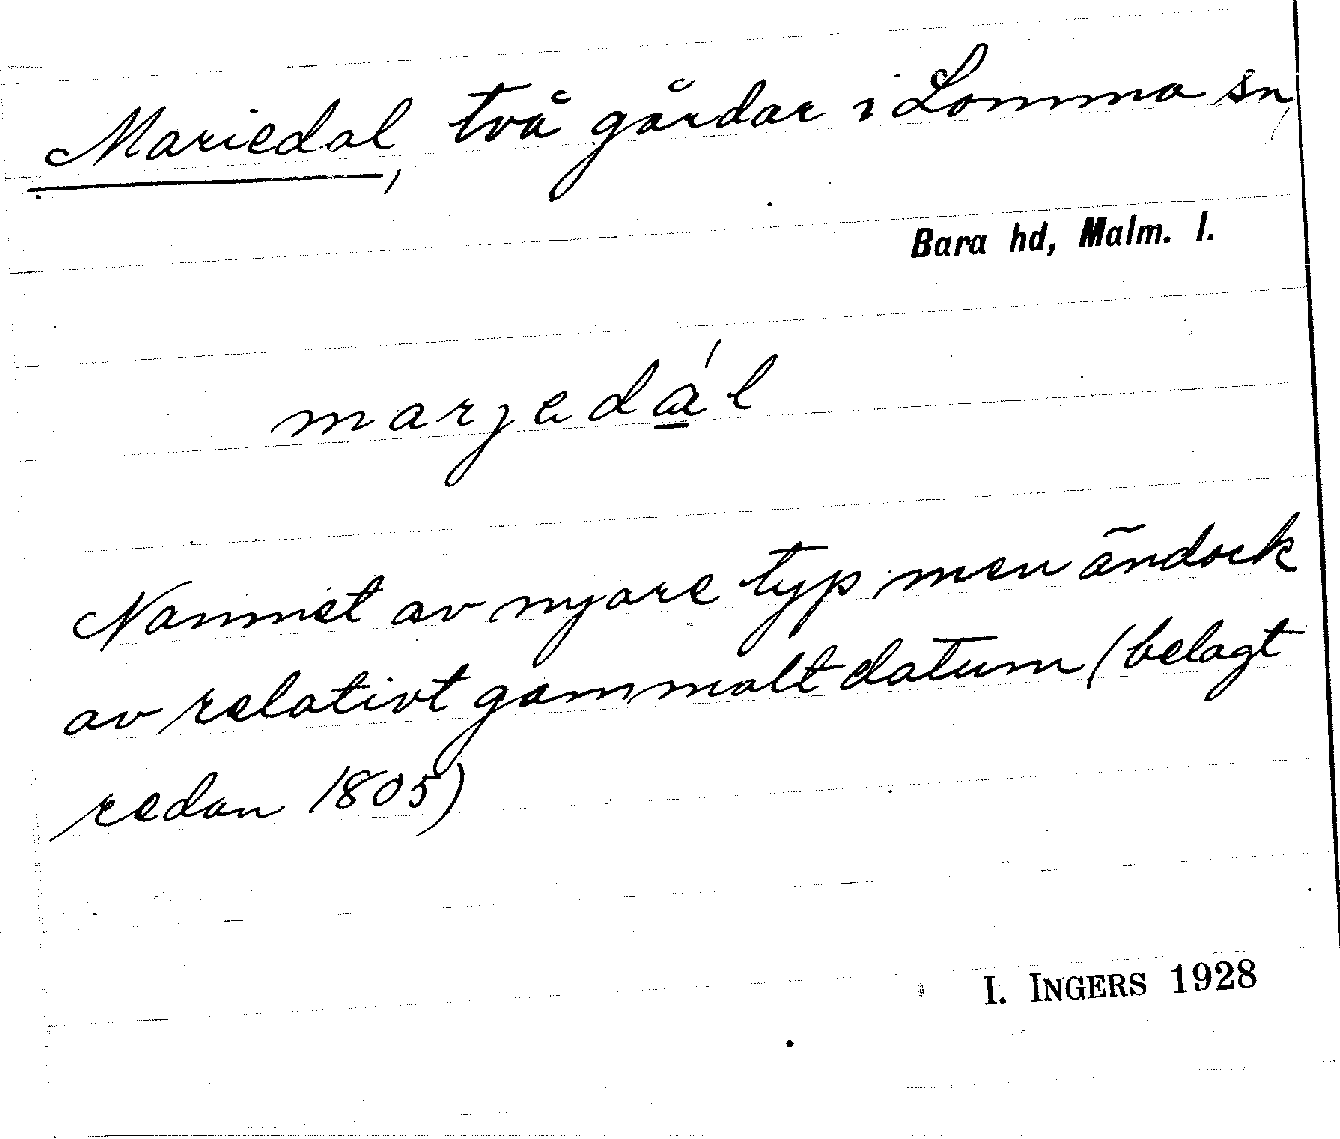 Mariedal, två gårdar i Lomma sn,
Bara hd, Malm. l.
marjedá̱l
Namnet av nyare typ men ändock
av relativt gammalt datum (belagt
redan 1805)
I. INGERS 1928